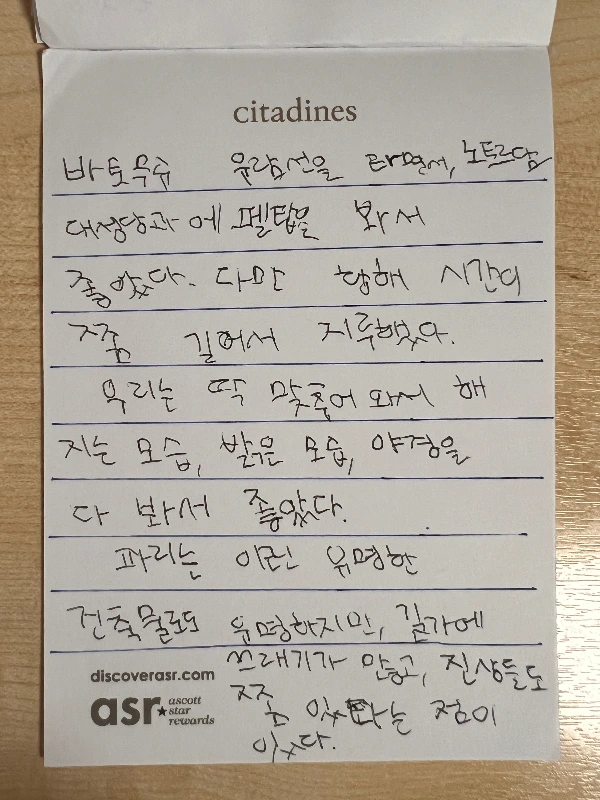 citadines
바토무슈 유람선을 타면서, 노트르담
대성당과 에펠탑을 봐서
좋았다. 다만 항해 시간이
쪼꼼 길어서 지루했다.
우리는 딱 맞춰어 와서 해
지는 모습, 밝은 모습, 야경을
다 봐서 좋았다.
파리는 이런 유명한
건축물로도 유명하지만, 길가에
쓰래기가 많고, 진상들도
쪼꼼 있다는 점이
있다.
discoverasr.com
asr ascott
star
rewards